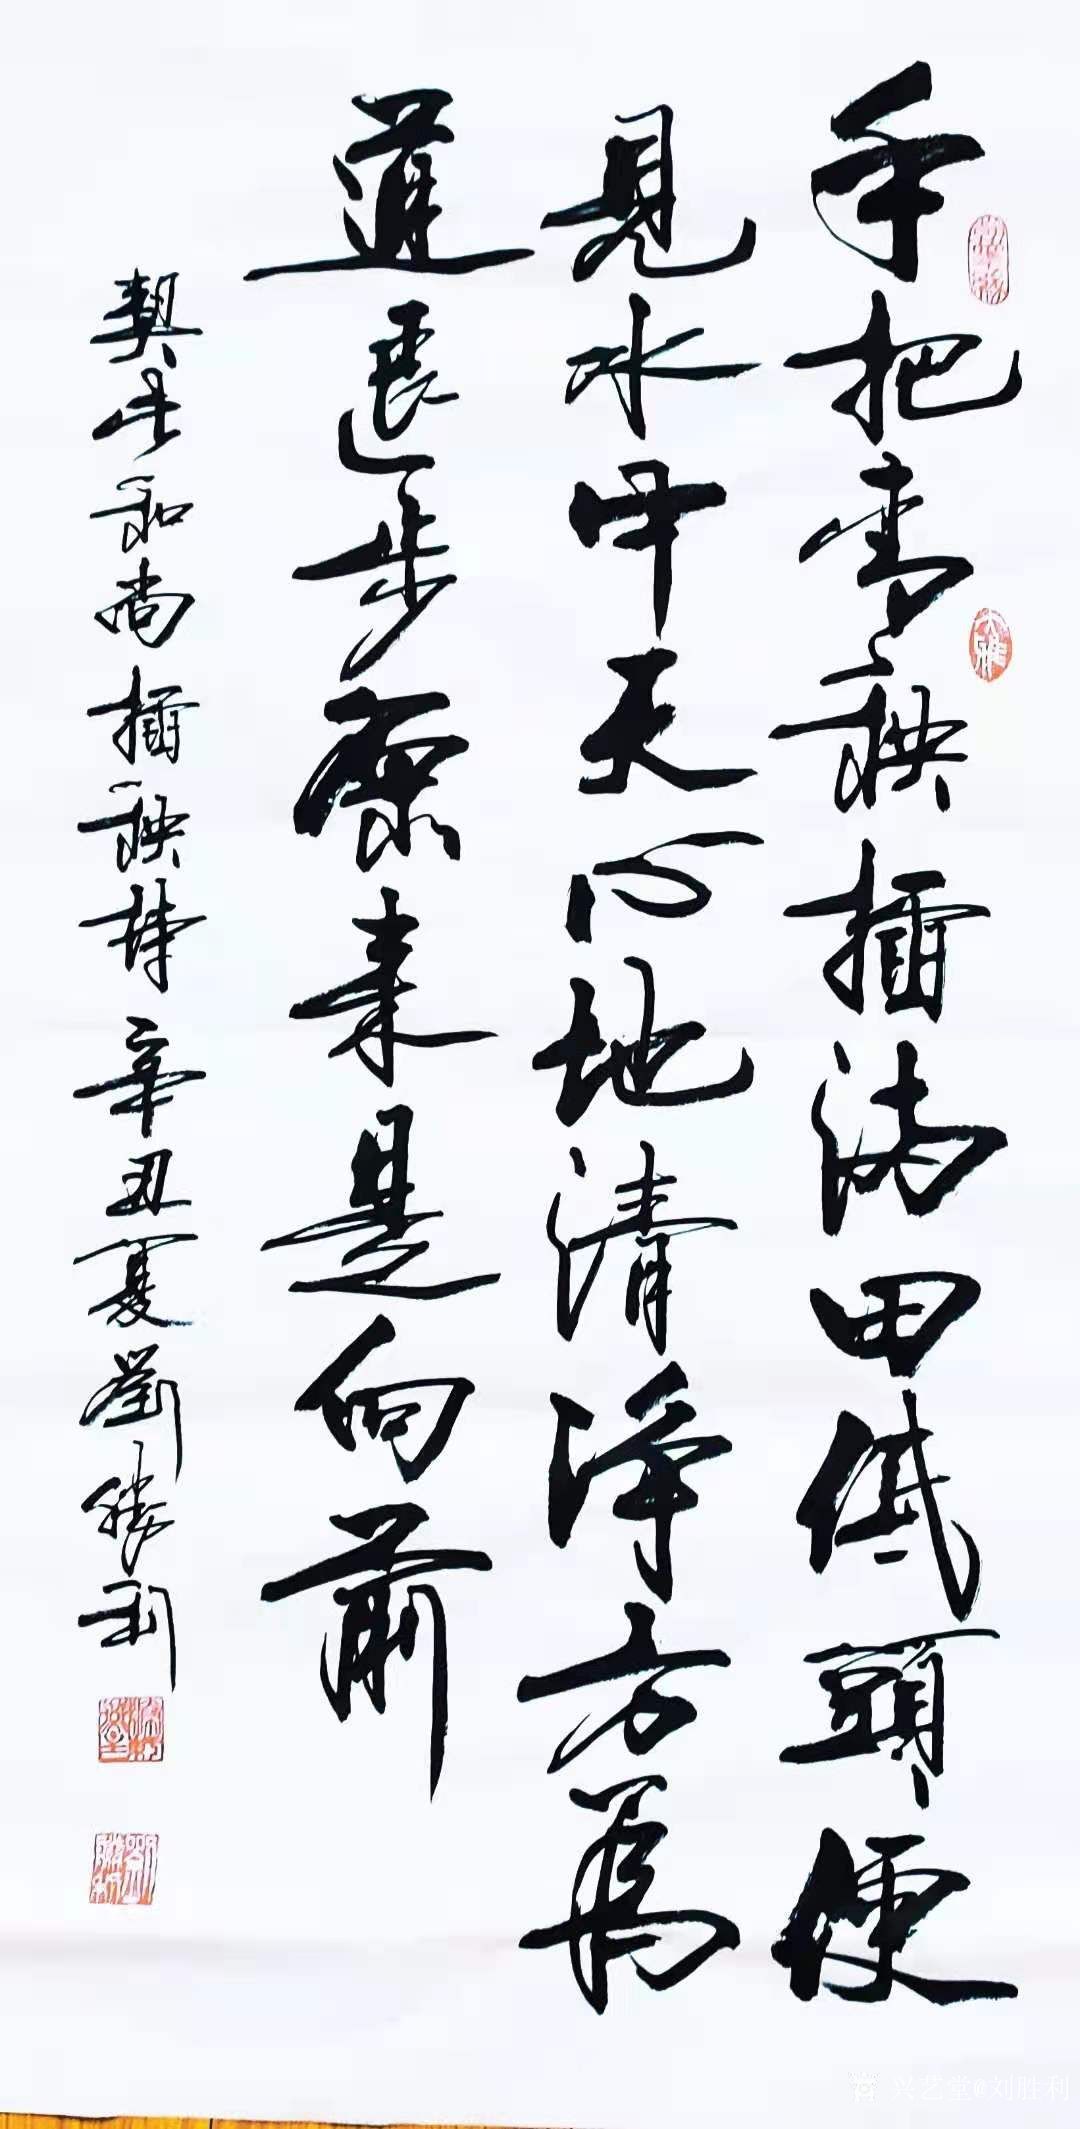 手把青秧插满田低頭便
見水中天心地清淨方為
道退步原来是向前
契此和尚插秧诗辛丑夏劉勝利
大雅
兴艺堂@刘胜利